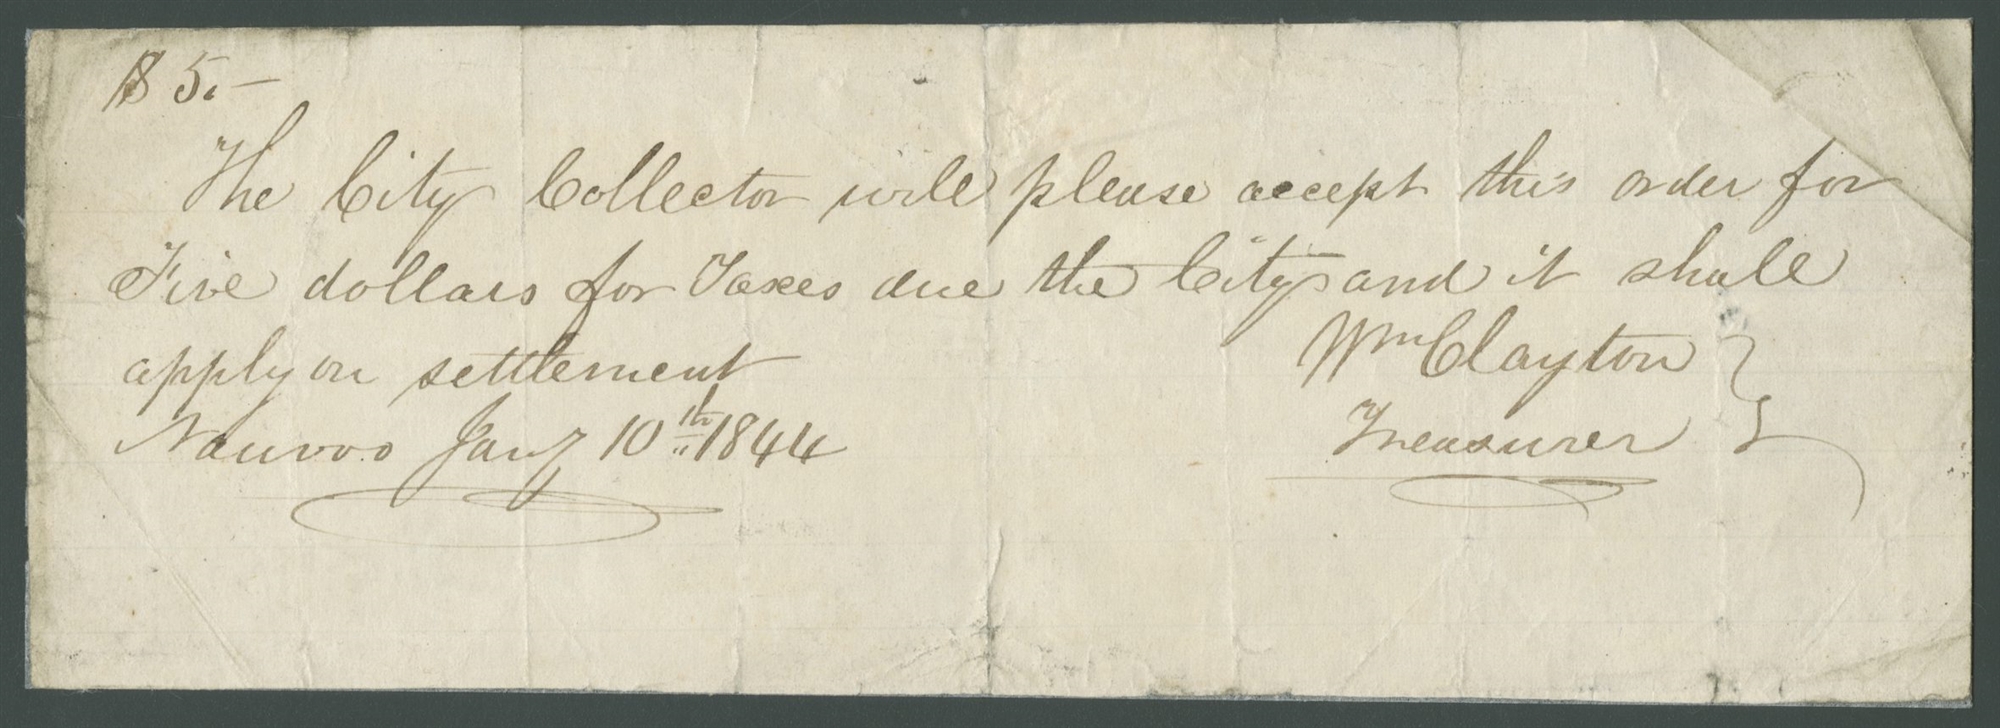 $5.—
The City Collector will please accept this order for
Five dollars for Taxes due the City and it shall
apply on settlement
Wm Clayton
Treasurer
Nauvoo Jany 10th 1844